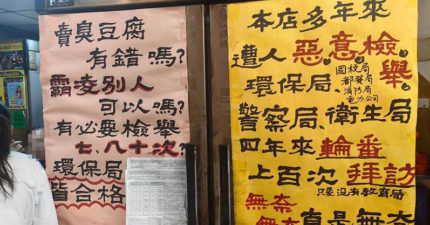 賣臭豆腐
有錯嗎?
霸凌別人
可以嗎?
有必要檢舉
七、八十次
環保局
皆合格
本店多年來
遭人惡意檢舉
國稅局
都發局
消防局
電力公司
環保局
警察局、衛生局
四年來輪番
上百次拜訪
只差沒有教育局
無奈
無奈真是無奈